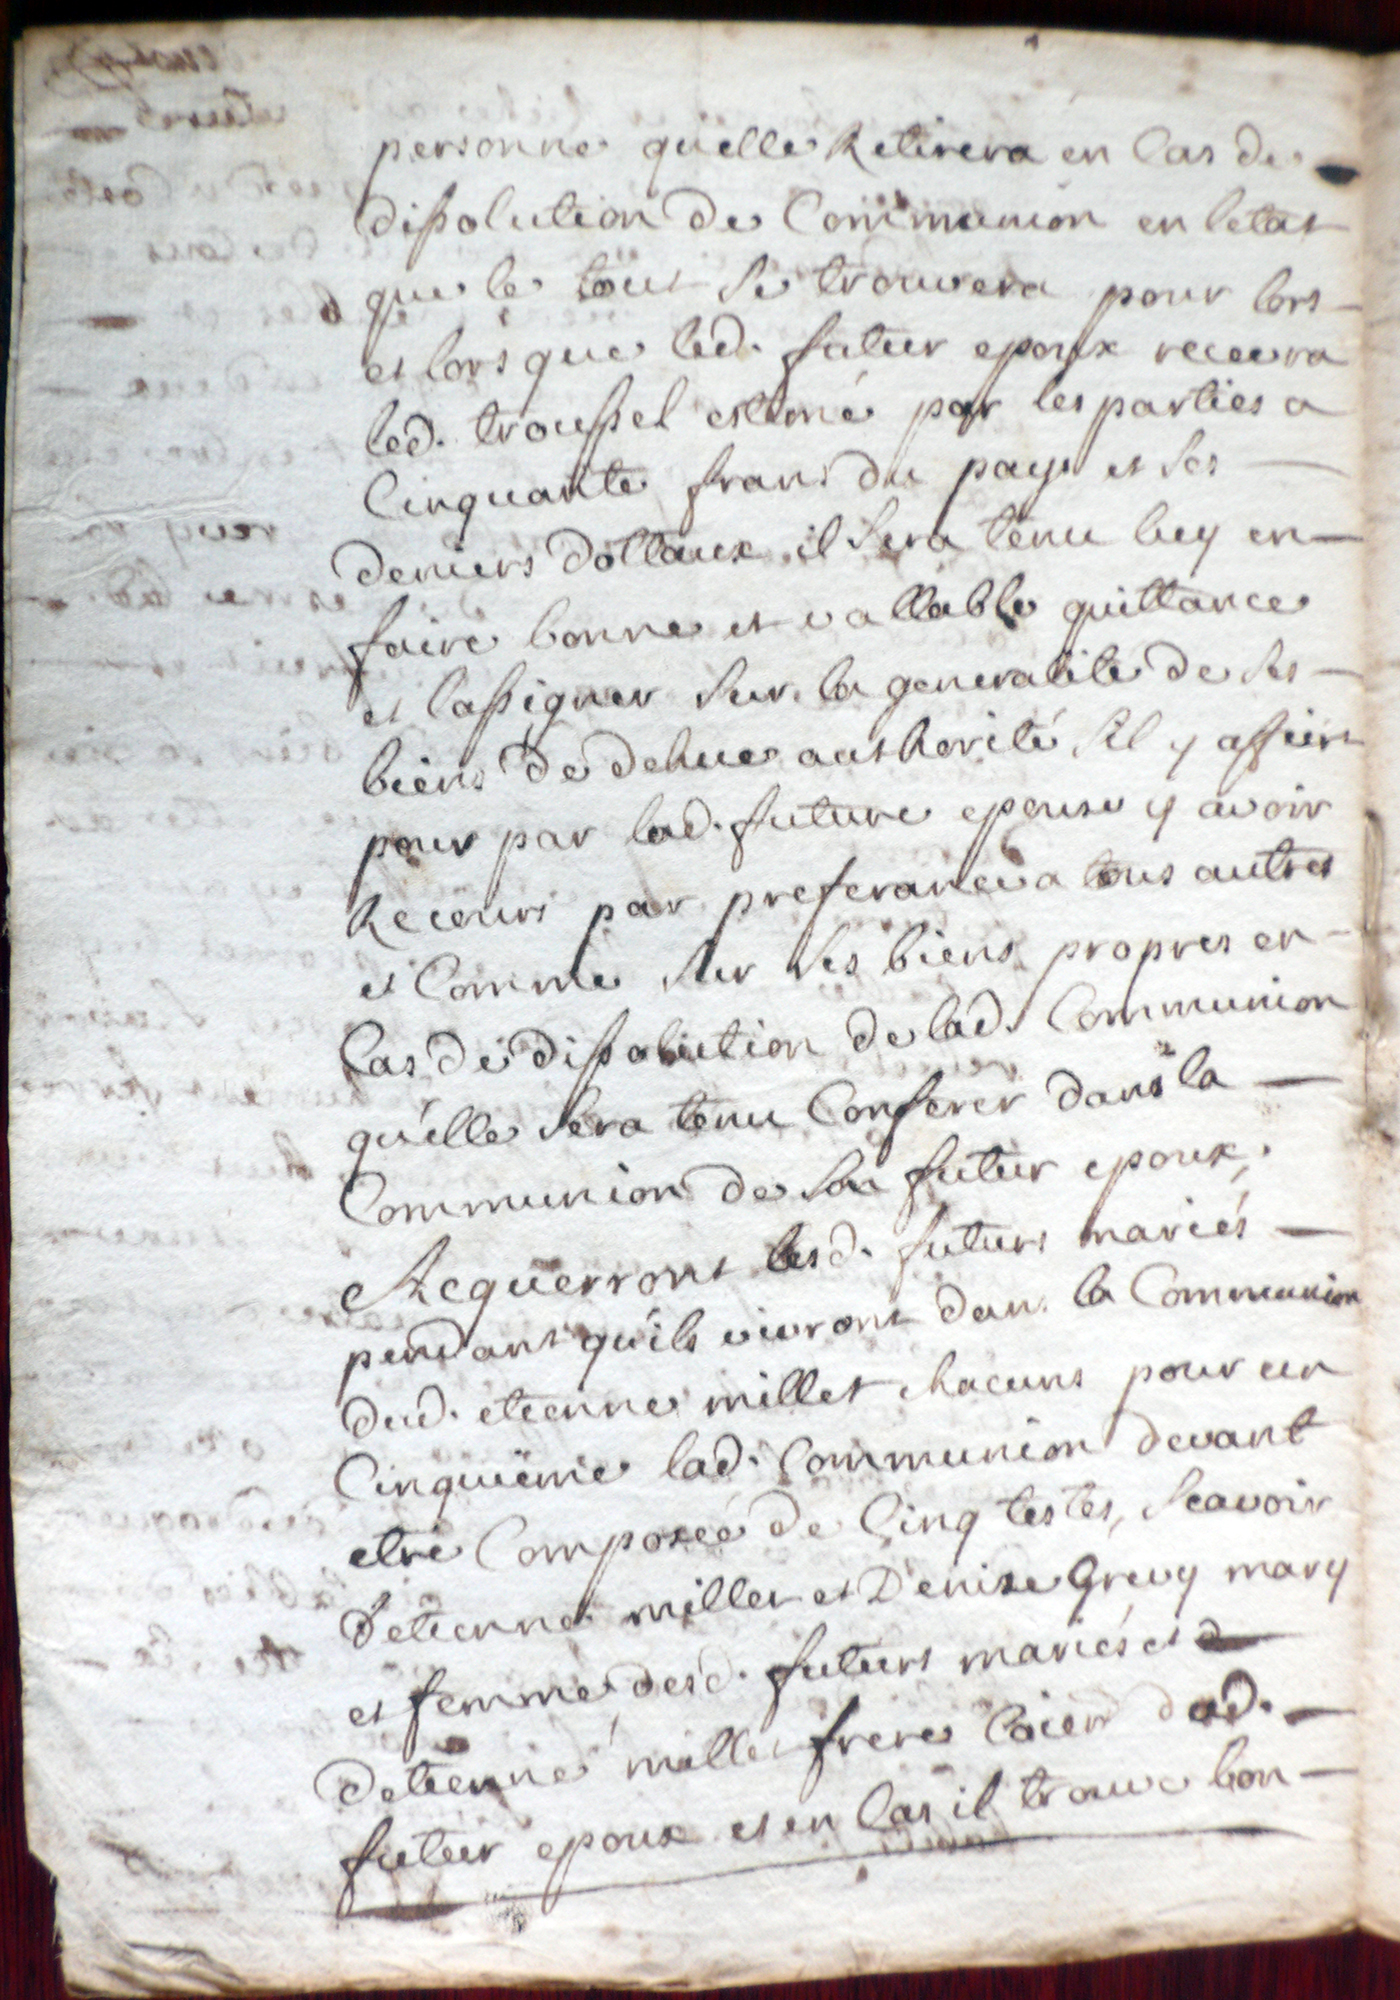 personne quelle Retirera en Cas de
dissolution de Communion en letat
que le tout se trouvera pour lors
et lors que led. futur epoux recevra
led. troussel estimé par les parties a
Cinquante frans du pays et ses
deniers dottaux il sera tenu luy en
faire bonne et vallable quittance
et lassigner sur la generalité de ses
biens de dehue authorité sil y affiert
pour par lad. future epouse y avoir
Recours par preferance a tous autres
et Comme sur ses biens propres en
Cas de dissolution de lad. Communion
qu'elle sera tenu Conferer dans la
Communion de son futur epoux,
Acquerront lesd. futurs mariés
pendant qu'ils vivront dans la Communion
dud. etienne millet chacuns pour un
Cinquième lad. Communion devant
etre Composée de Cinq testes, scavoir
d'etienne millet et Denise Grevy mary
et femme desd. futurs mariés et d
detienne millet frere dud.
futur epoux et en Cas il trouve bon